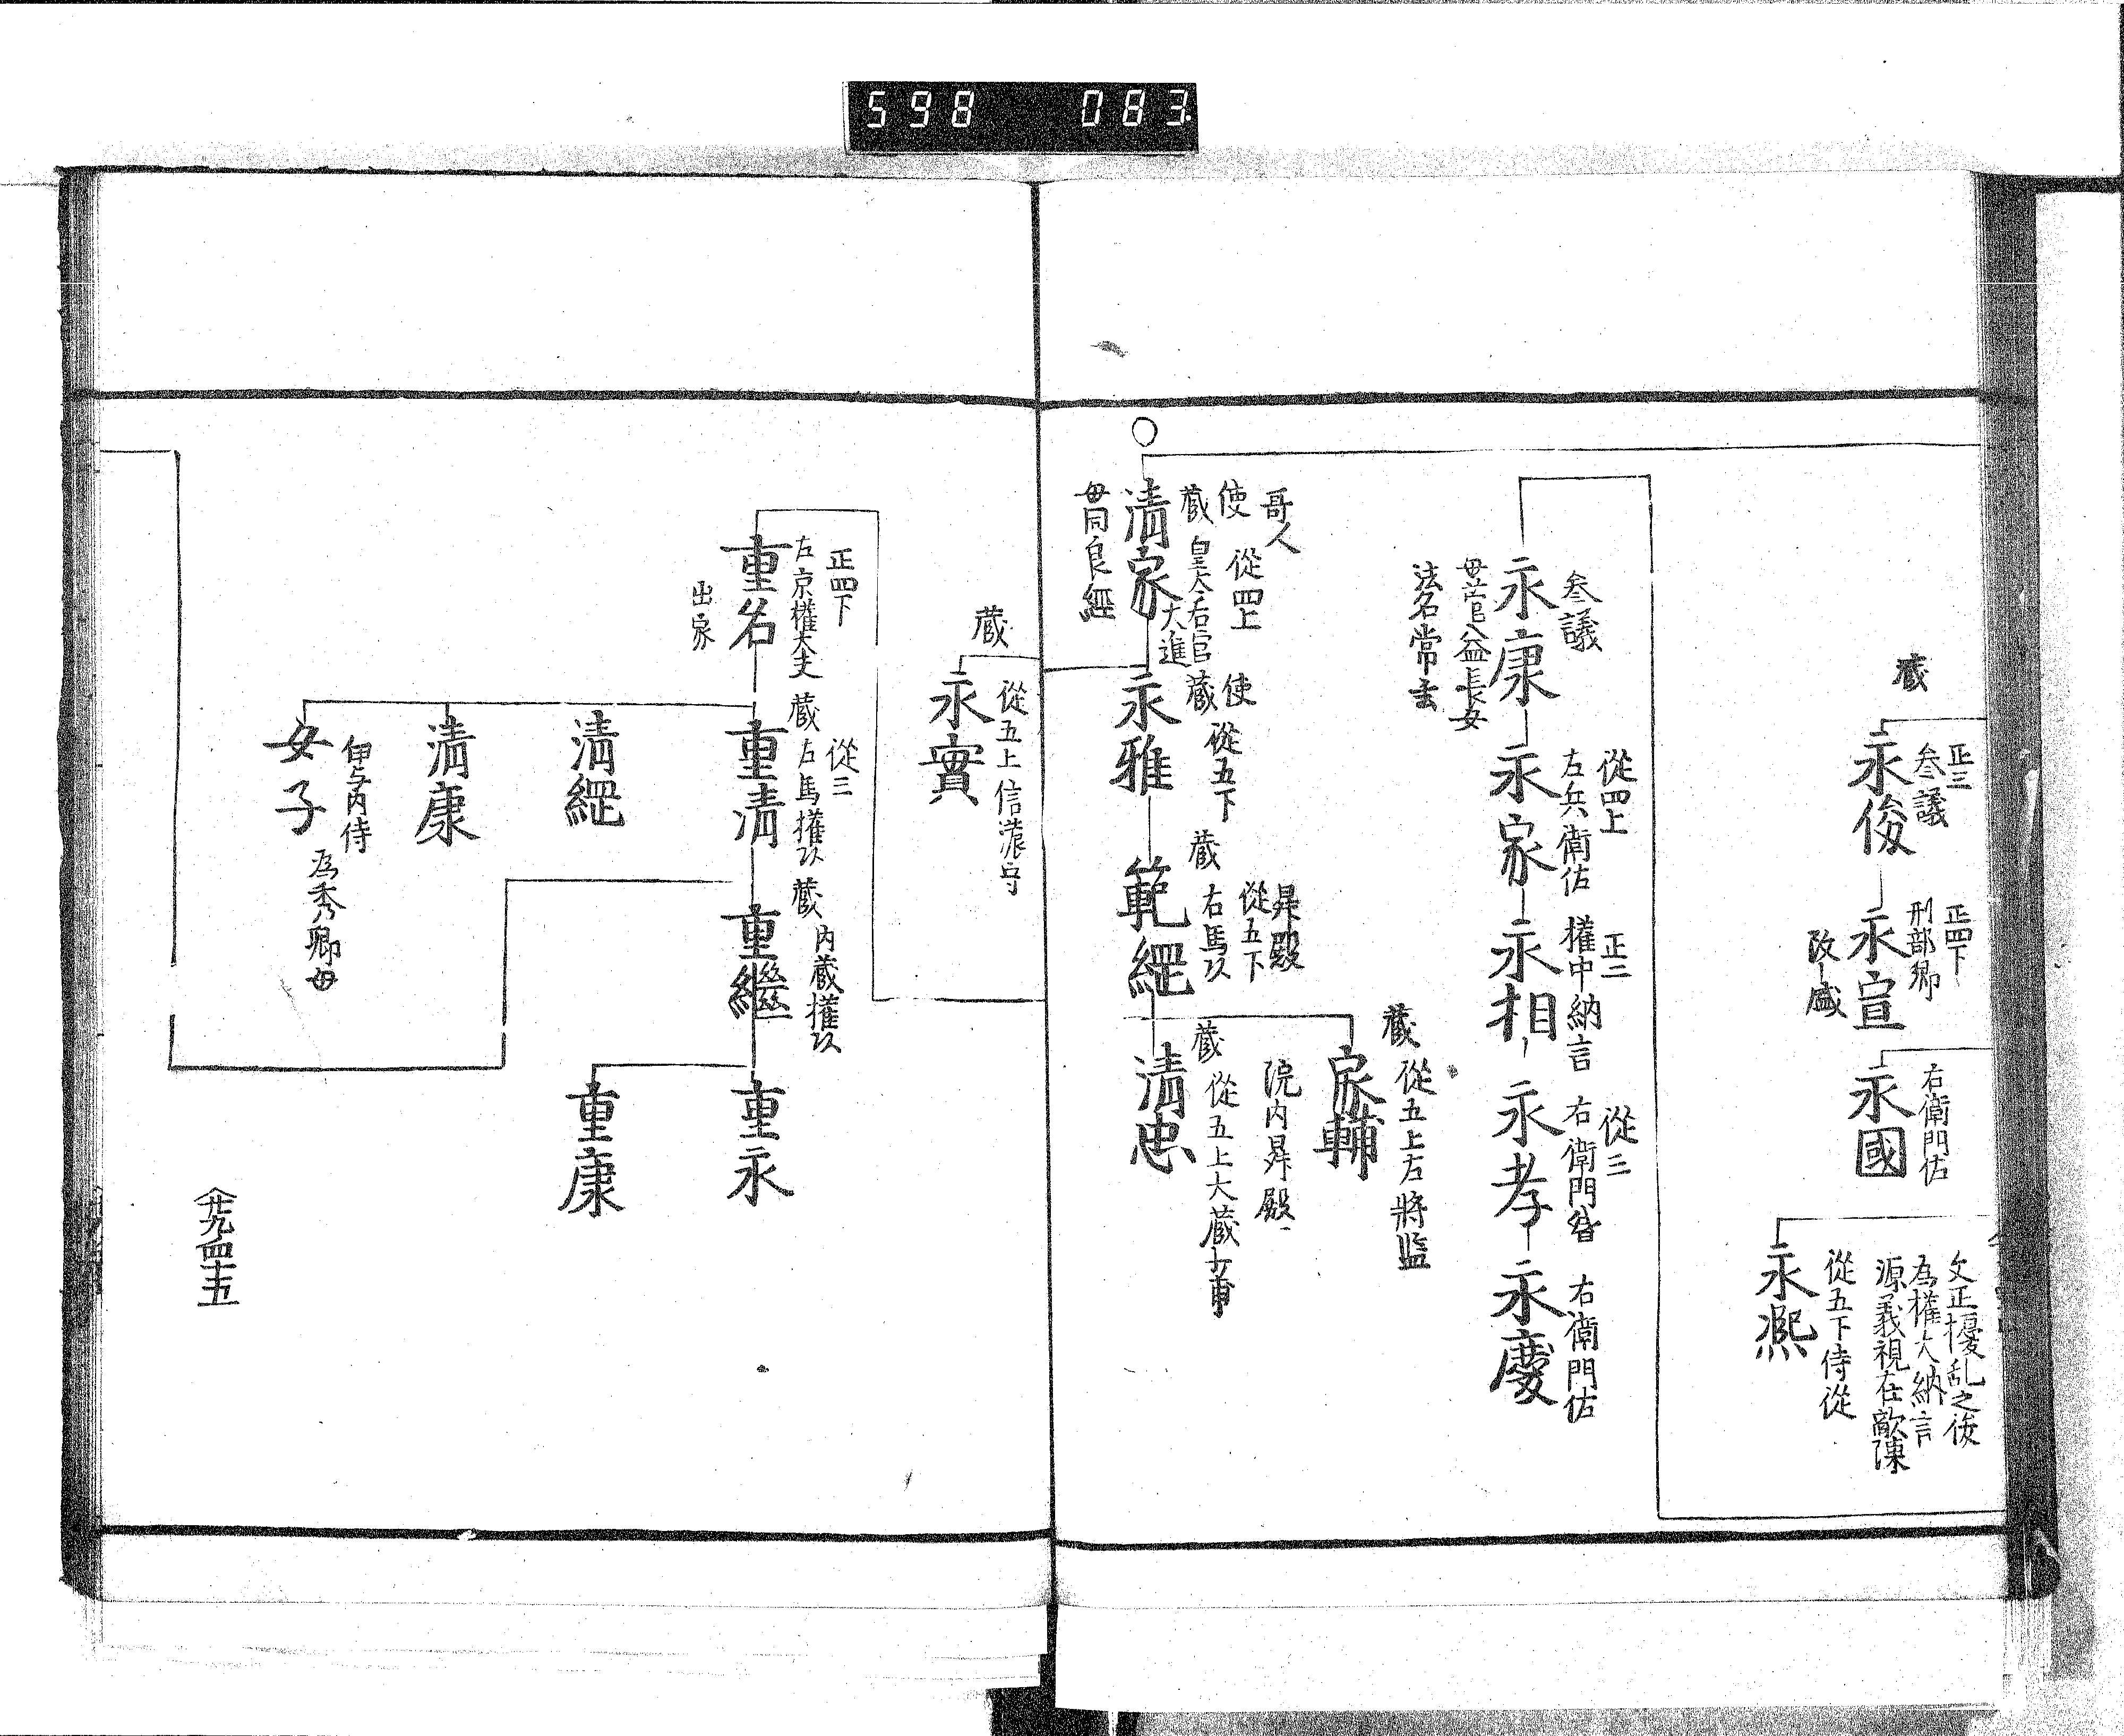 598 083
蔵
正三
参議
永俊
正四下
刑部卿
永宣
改盛
右衛門佐
永國
文正擾乱之後
為權大納言
源義視在敵陳
從五下侍從
永熈
参議
永康
母菅益長女
法名常玄
從四上
左兵衛佐
永家
正二
權中納言
永相
從三
右衛門督
永孝
右衛門佐
永慶
哥人
使 從四上
蔵 皇太后宮
大進
清家
母同良經
使
蔵 從五下
永雅
昇殿
蔵 從五下
右馬以
範經
蔵 從五上右將監
家輔
院内昇殿
蔵 從五上大蔵少甫
清忠
蔵
從五上信濃守
永實
正四下
左京權大夫
重名
出家
從三
蔵 左馬權以
重清
清經
清康
伊与内侍
女子
為秀卿母
蔵 内蔵權以
重繼
重永
重康
廿九 四十五